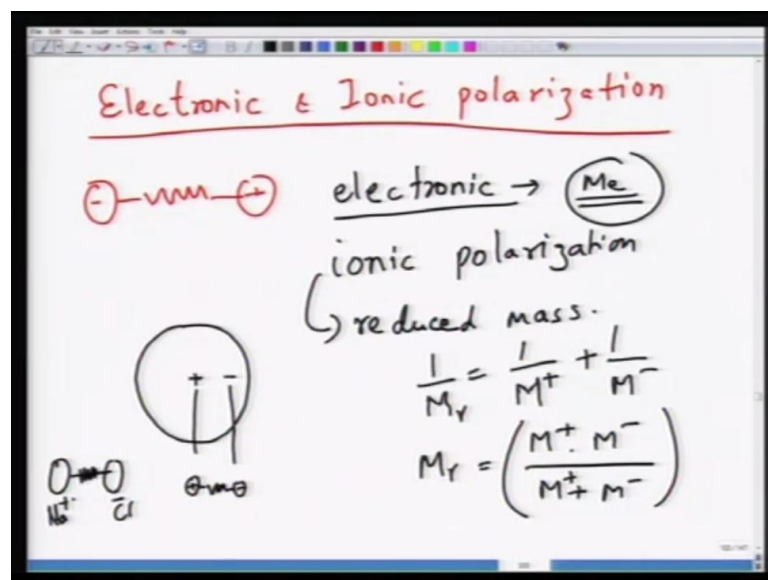 Electronic & Ionic polarization
- +
electronic → Me
ionic polarization
reduced mass.
1/Mr = 1/M⁺ + 1/M⁻
+ -
Mr = (M⁺. M⁻ / M⁺ + M⁻)
Na⁺ Cl⁻